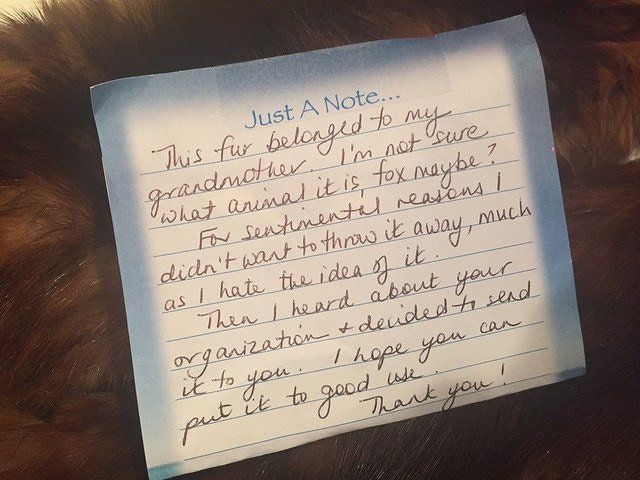 Just A Note...
This fur belonged to my
grandmother. I'm not sure
what animal it is, fox maybe?
For sentimental reasons I
didn't want to throw it away, much
as I hate the idea of it.
Then I heard about your
organization + decided to send
it to you. I hope you can
put it to good use.
Thank you!